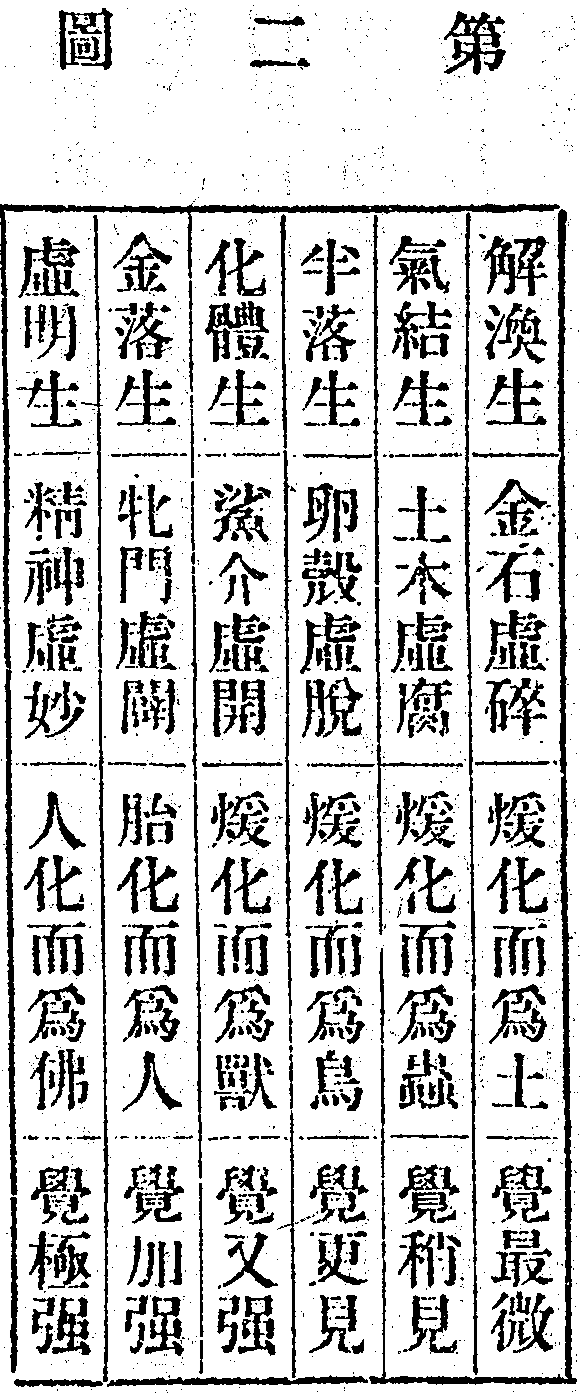 第二圖
解渙生 金石虛碎 煖化而爲土 覺最微
氣結生 土木虛腐 煖化而爲蟲 覺稍見
半落生 卵殼虛脫 煖化而爲鳥 覺更見
化體生 鯊介虛開 煖化而爲獸 覺又强
金落生 牝門虛 胎化而爲人 覺加强
虛明生 精神虛妙 人化而爲佛 覺極强